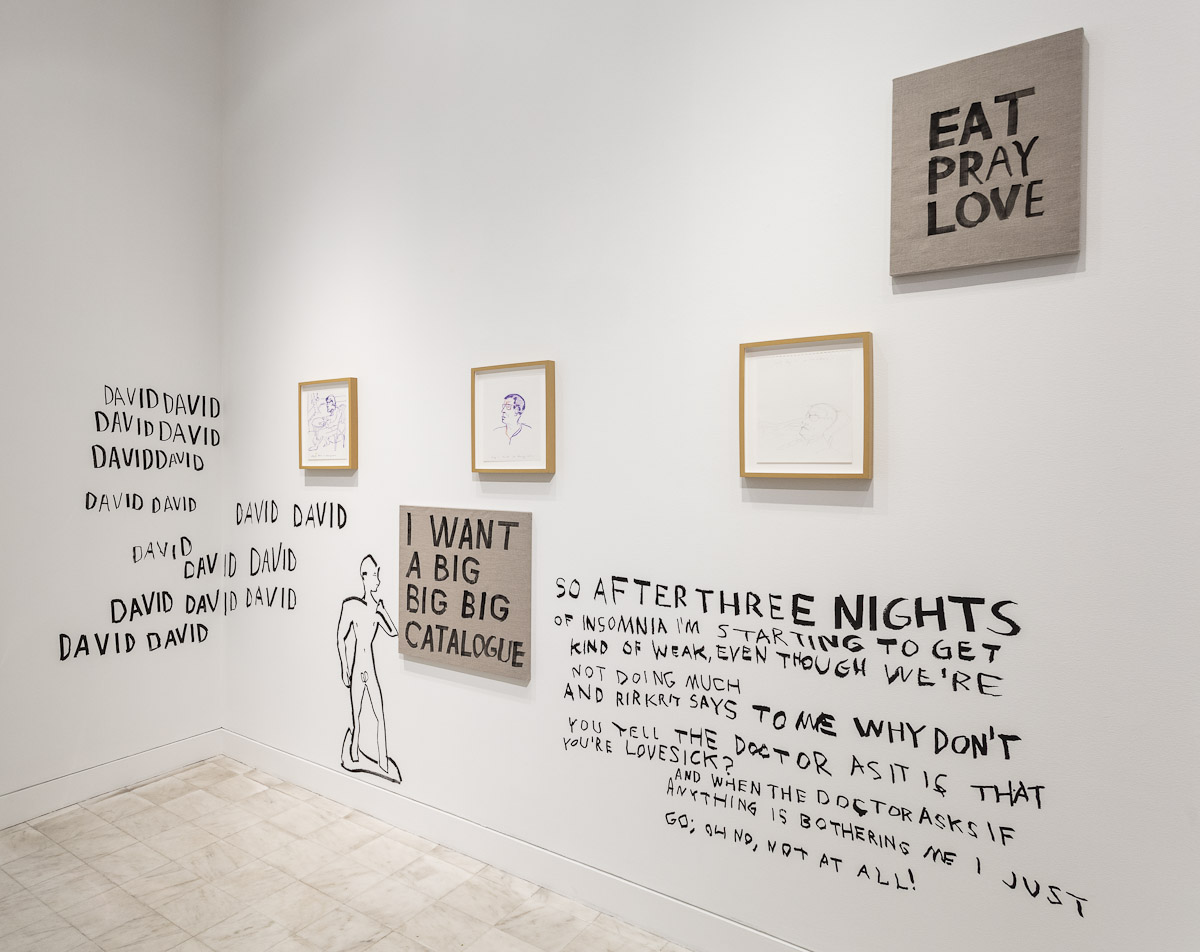 DAVID DAVID
DAVID DAVID
DAVID DAVID
DAVID DAVID
DAVID DAVID
DAVID
DAVID DAVID
DAVID DAVID DAVID
DAVID DAVID
I WANT
A BIG
BIG BIG
CATALOGUE
EAT
PRAY
LOVE
SO AFTER THREE NIGHTS
OF INSOMNIA I'M STARTING TO GET
KIND OF WEAK, EVEN THOUGH WE'RE
NOT DOING MUCH
AND RIRKRIT SAYS TO ME WHY DON'T
YOU TELL THE DOCTOR AS IT IS THAT
YOU'RE LOVESICK?
AND WHEN THE DOCTOR ASKS IF
ANYTHING IS BOTHERING ME I JUST
GO; OH NO, NOT AT ALL!